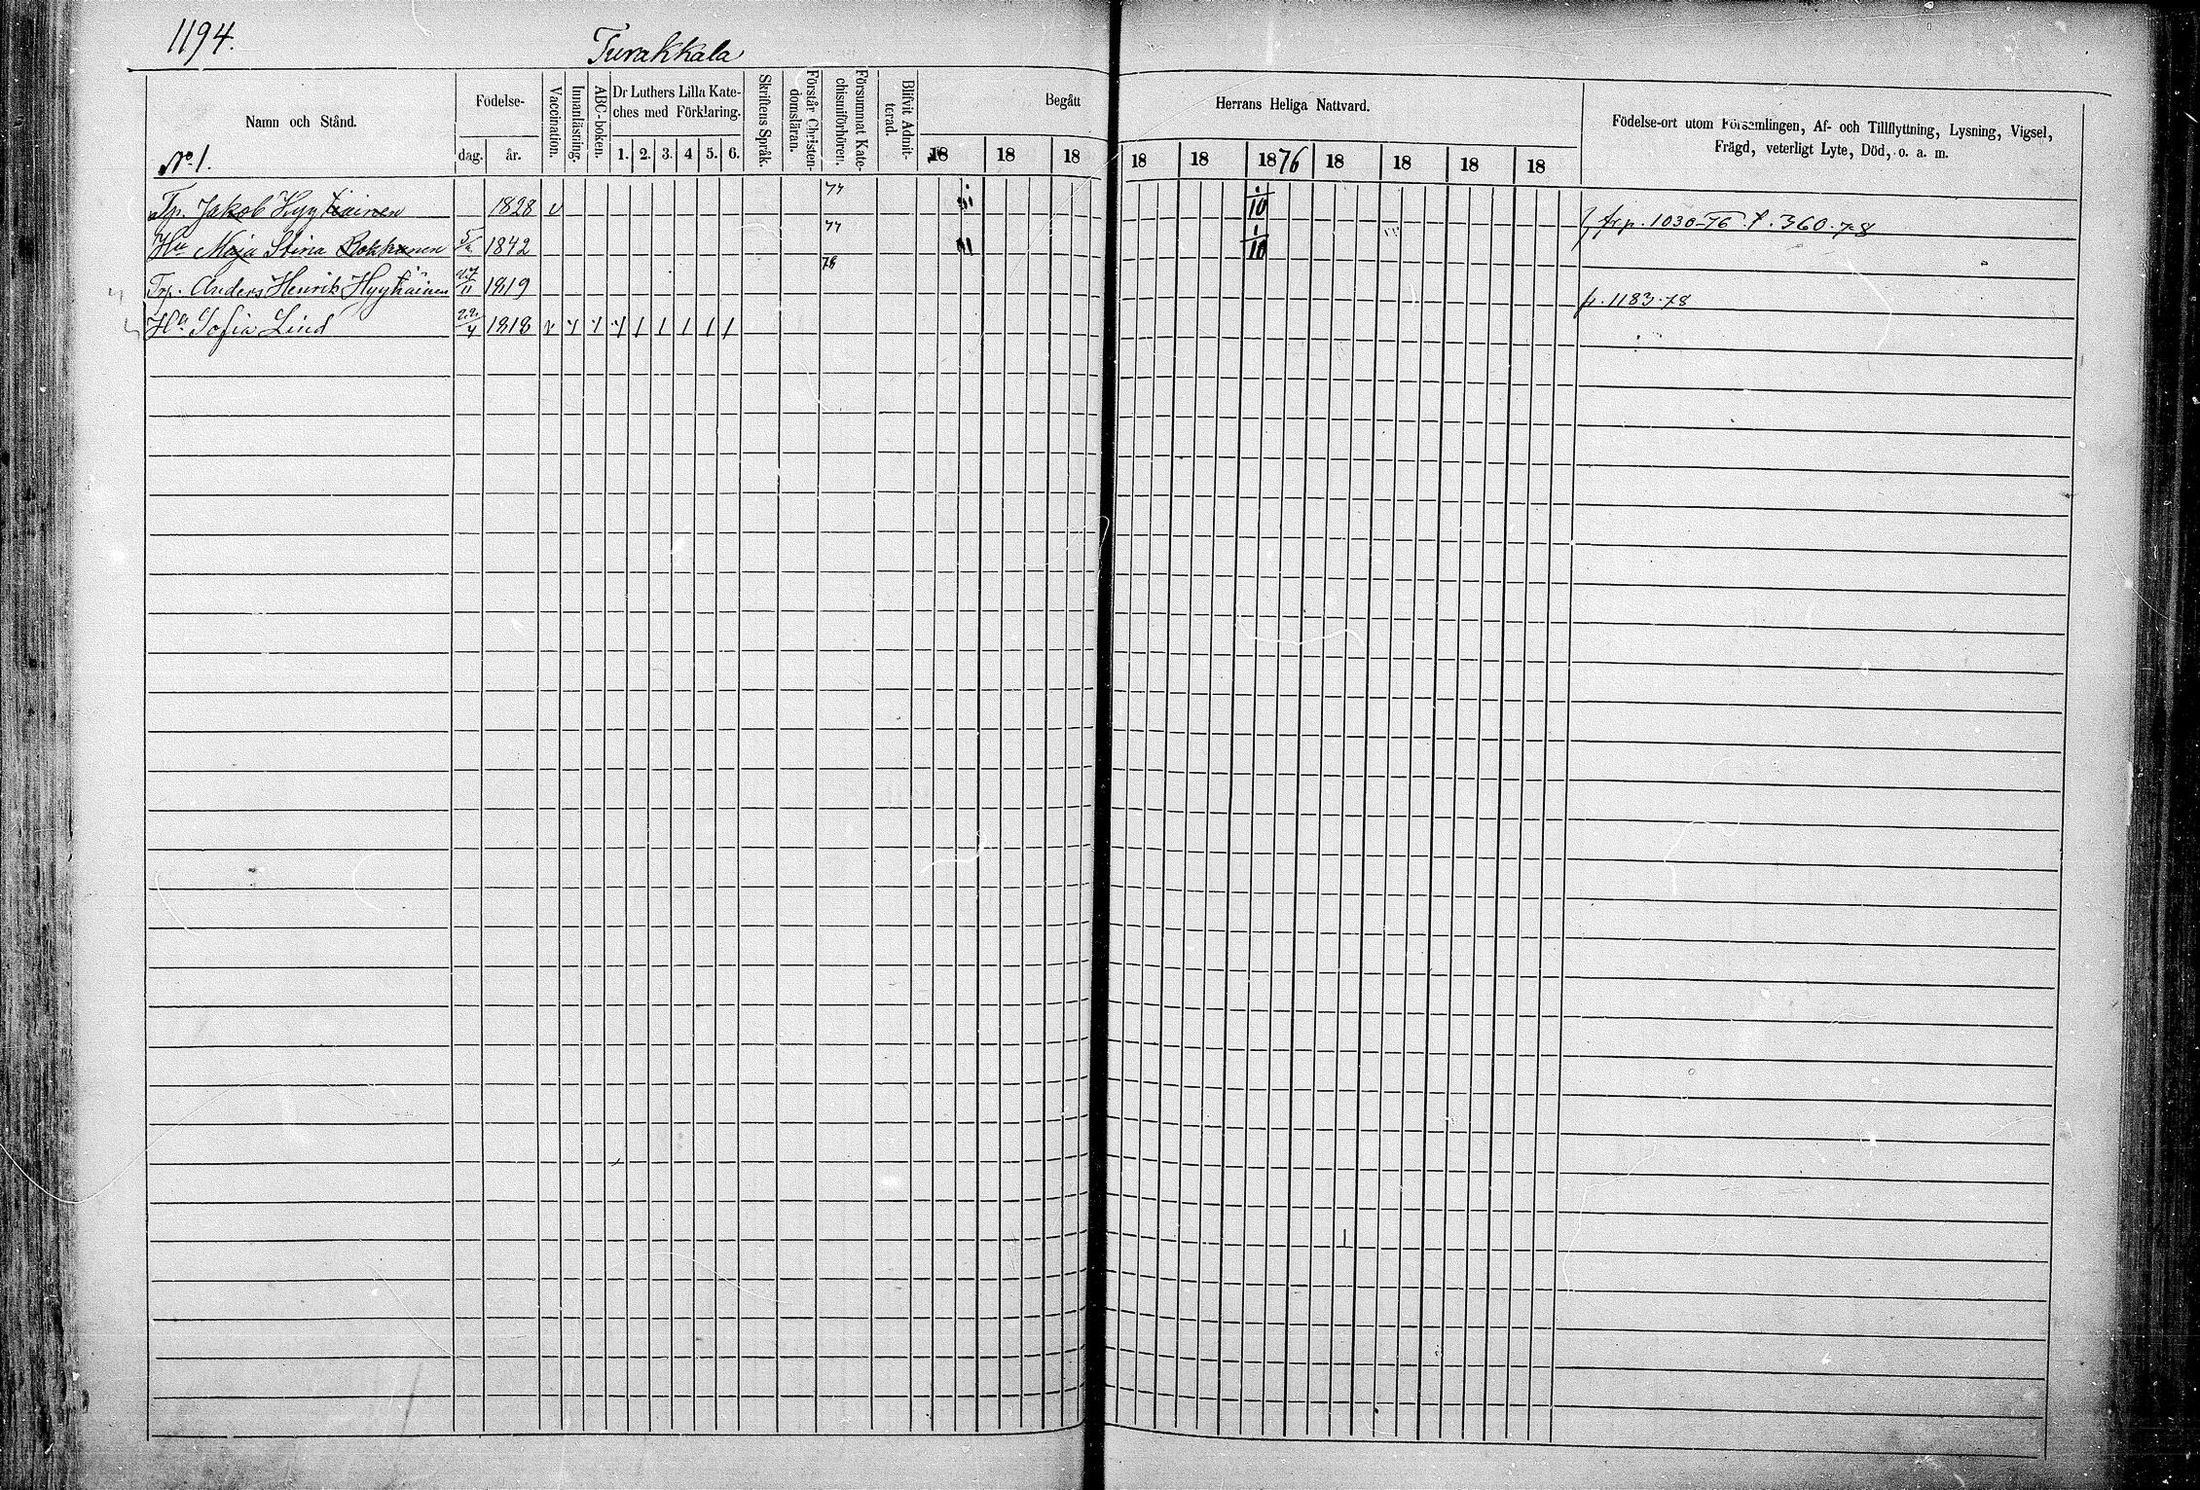 1194.
Turakkala
Namn och Stånd.
Födelse-
dag. år.
Vaccination.
Innanläsning.
ABC-boken.
Dr Luthers Lilla Kate-
ches med Förklaring.
1. 2. 3. 4 5. 6.
Skriftens Språk.
Förstår Christen-
domsläran.
Försummat Kate-
chismiförhören.
Blifvit Admit-
terad.
Begått Herrans Heliga Nattvard.
18 18 18 18 18 1876 18 18 18 18
Födelse-ort utom Församlingen, Af- och Tillflyttning, Lysning, Vigsel,
Frägd, veterligt Lyte, Död, o. a. m.
No 1.
Tp. Jakob Hyytiäinen 1828 v 77 1/10 frp. 1030-76. f. 360.78
Hu Maja Stina 1842 77 1/10
Trp. Anders Henrik Hyytiäinen 27/11 1819 78 p. 1183.78
Hu Sofia Lind 22/4 1818